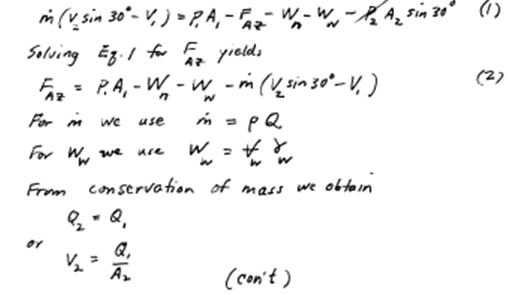 ṁ(V₂ sin 30° - V₁) = P₁A₁ - F_AZ - W_n - W_w - P₂A₂ sin 30° (1)
Solving Eq. 1 for F_AZ yields
F_AZ = P₁A₁ - W_n - W_w - ṁ(V₂ sin 30° - V₁) (2)
For ṁ we use ṁ = ρQ
For W_w we use W_w = V̶_w γ_w
From conservation of mass we obtain
Q₂ = Q₁
or
V₂ = Q₁/A₂
(con't)